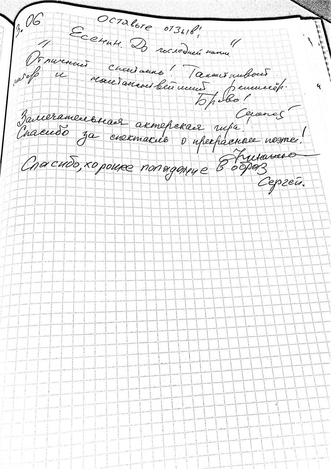 3.06 Оставьте отзыв!
"Есенин. До последней капли"
Отличный спектакль! Талантливый
актер и настоящий режиссер.
Браво!
Замечательная актерская игра.
Спасибо за спектакль о прекрасном поэте!
Спасибо, хорошее попадание в образ
Сергей.